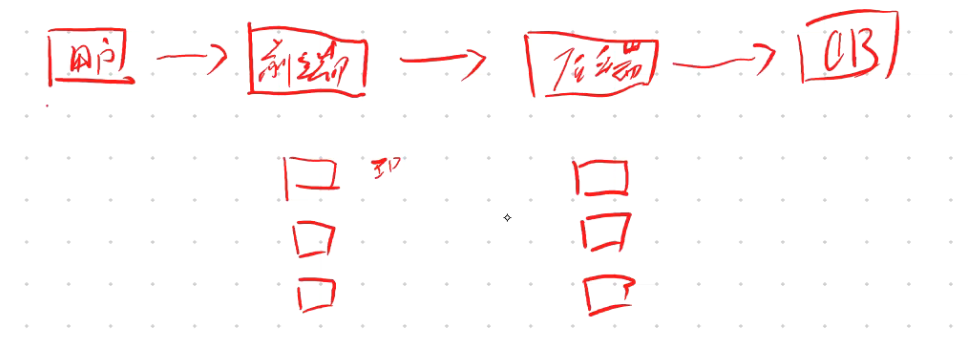 用户 前端 后端 DB
ID